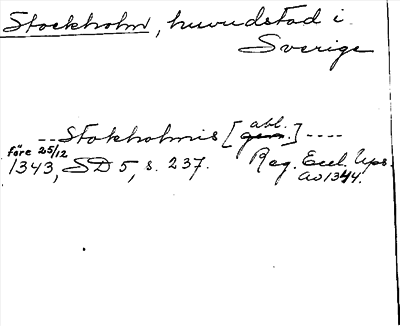 Stockholm, huvudstad i
Sverige
--Stokholmis [abl.] ----
före 25/12
1343, SD 5, s. 237. Reg. Eccl. Ups.
av 1344.